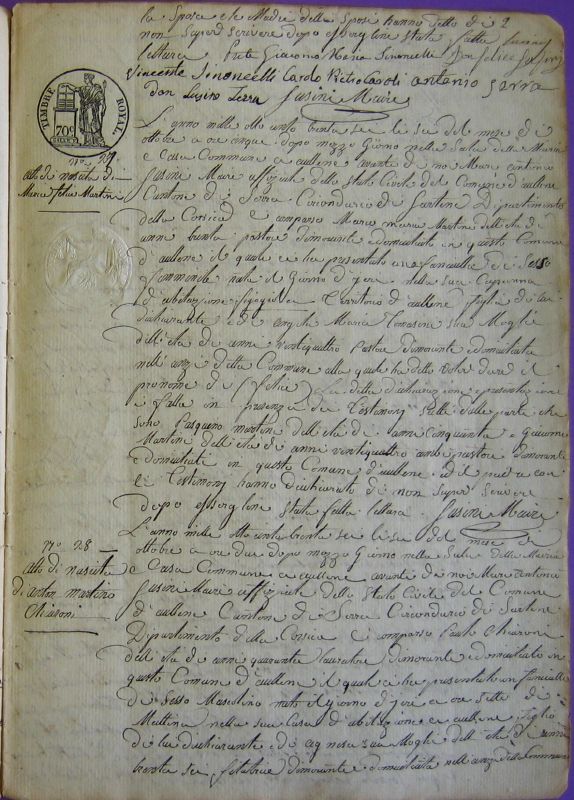 la Sposa e le Madri della Sposi hanno detto di
non saper scrivere dopo esserglene stata fatta
lettura prete Giacomo Maria Simonelli Don felice
Vincente Simoncelli Carlo Pietro Paoli antonio Serra
don Serra Susini Maire
TIMBRE ROYAL
70c
L'anno mille otto cento trenta sei li sei del mese di
ottobre a ore cinque dopo mezzo Giorno nella Sala della Mairia
e Casa Commune a aullene avanti di noi Marc antonio
Susini Maire uffiziale dello Stato Civile del Comune d'aullene
Cantone di Serra Circondario di Sartene Dipartimento
della Corsica è comparso Martini dell'età di
anni trenta pastore dimorante e domiciliato in questo Comune
d'aullene il quale ci ha presentato una fanciulla di Sesso
Femminile nata il Giorno d'jere nella sua Capanna
d'abitazione Territorio d'aullene figlia di lui
dichiarante e di Maria sua Moglie
dell'età di anni ventiquattro Pastora dimorante e domiciliata
nell'anzi detta Commune alla quale ha detto voler dare il
prenome di (felice) La detta dichiarazione e presentazione
è fatta in presenza di Testimonj
sono Pasquino martini dell'età di anni cinquanta e Giacomo
Martini dell'età di anni ventiquattro ambi pastori dimoranti
e domiciliati in questo Comune d'aullene
li Testimonj hanno dichiarato di non saper scrivere
dopo esserglene stata fatta lettura. Susini Maire
nº 27
atto di nascita di
Maria felice Martini
L'anno mille otto cento trenta sei li sei del mese di
ottobre a ore due dopo mezzo Giorno nella Sala della Mairia
e Casa Commune a aullene avanti di noi Marc antonio
Susini Maire uffiziale dello Stato Civile del Comune
d'aullene Cantone di Serra Circondario di Sartene
Dipartimento della Corsica è comparso Paulo Chiaroni
dell'età di anni quaranta lavoratore dimorante e domiciliato in
questo Comune d'aullene il quale ci ha presentato un fanciullo
di Sesso Mascolino nato il giorno d'jere a ore sette di
Mattina nella sua Casa d'abitazione a aullene figlio
di lui dichiarante e di sua Moglie dell'età di anni
trenta sei filatrice dimorante e domiciliata nell'anzi detta Commune
nº 28
atto di nascita
di anton martino
Chiaroni